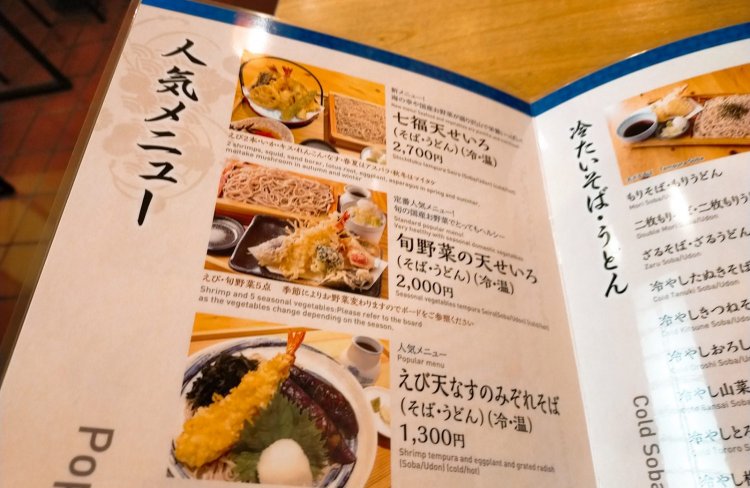 人気メニュー
Pop
新メニュー!
海の幸や国産お野菜が盛り沢山で栄養いっぱい!
七福天せいろ
(そば・うどん)(冷・温)
2,700円
Shichifuku tempura Seiro (Soba/Udon) (cold/hot)
えび2本・いか・キス・れんこん・なす・春夏はアスパラ・秋冬はマイタケ
2 shrimps, squid, sand borer, lotus root, eggplant, asparagus in spring and summer,
maitake mushroom in autumn and winter
定番人気メニュー!
旬の国産お野菜でとってもヘルシー
Standard popular menu!
Very healthy with seasonal domestic vegetables
旬野菜の天せいろ
(そば・うどん)(冷・温)
2,000円
Seasonal vegetables tempura Seiro(Soba/Udon) (cold/hot)
えび・旬野菜5点 季節によりお野菜変わりますのでボードをご参照ください
Shrimp and 5 seasonal vegetables:Please refer to the board
as the vegetables change depending on the season.
人気メニュー
Popular menu
えび天なすのみぞれそば
(そば・うどん)(冷・温)
1,300円
Shrimp tempura and eggplant and grated radish
(Soba/Udon) (cold/hot)
冷たいそば・うどん
Cold Soba
もりそば・もりうどん
Mori Soba/Udon
二枚もりそば・二枚もりう
Double Mori Soba/Udon
ざるそば・ざるうどん
Zaru Soba/Udon
冷やしたぬきそば
Cold Tanuki Soba/Udon
冷やしきつね
Cold Kitsune Soba/Ud
冷やしおろし
Cold Oroshi Soba/Ud
冷やし山菜
Cold Sansai Soba/
冷やしとろ
Cold Tororo S
冷やし